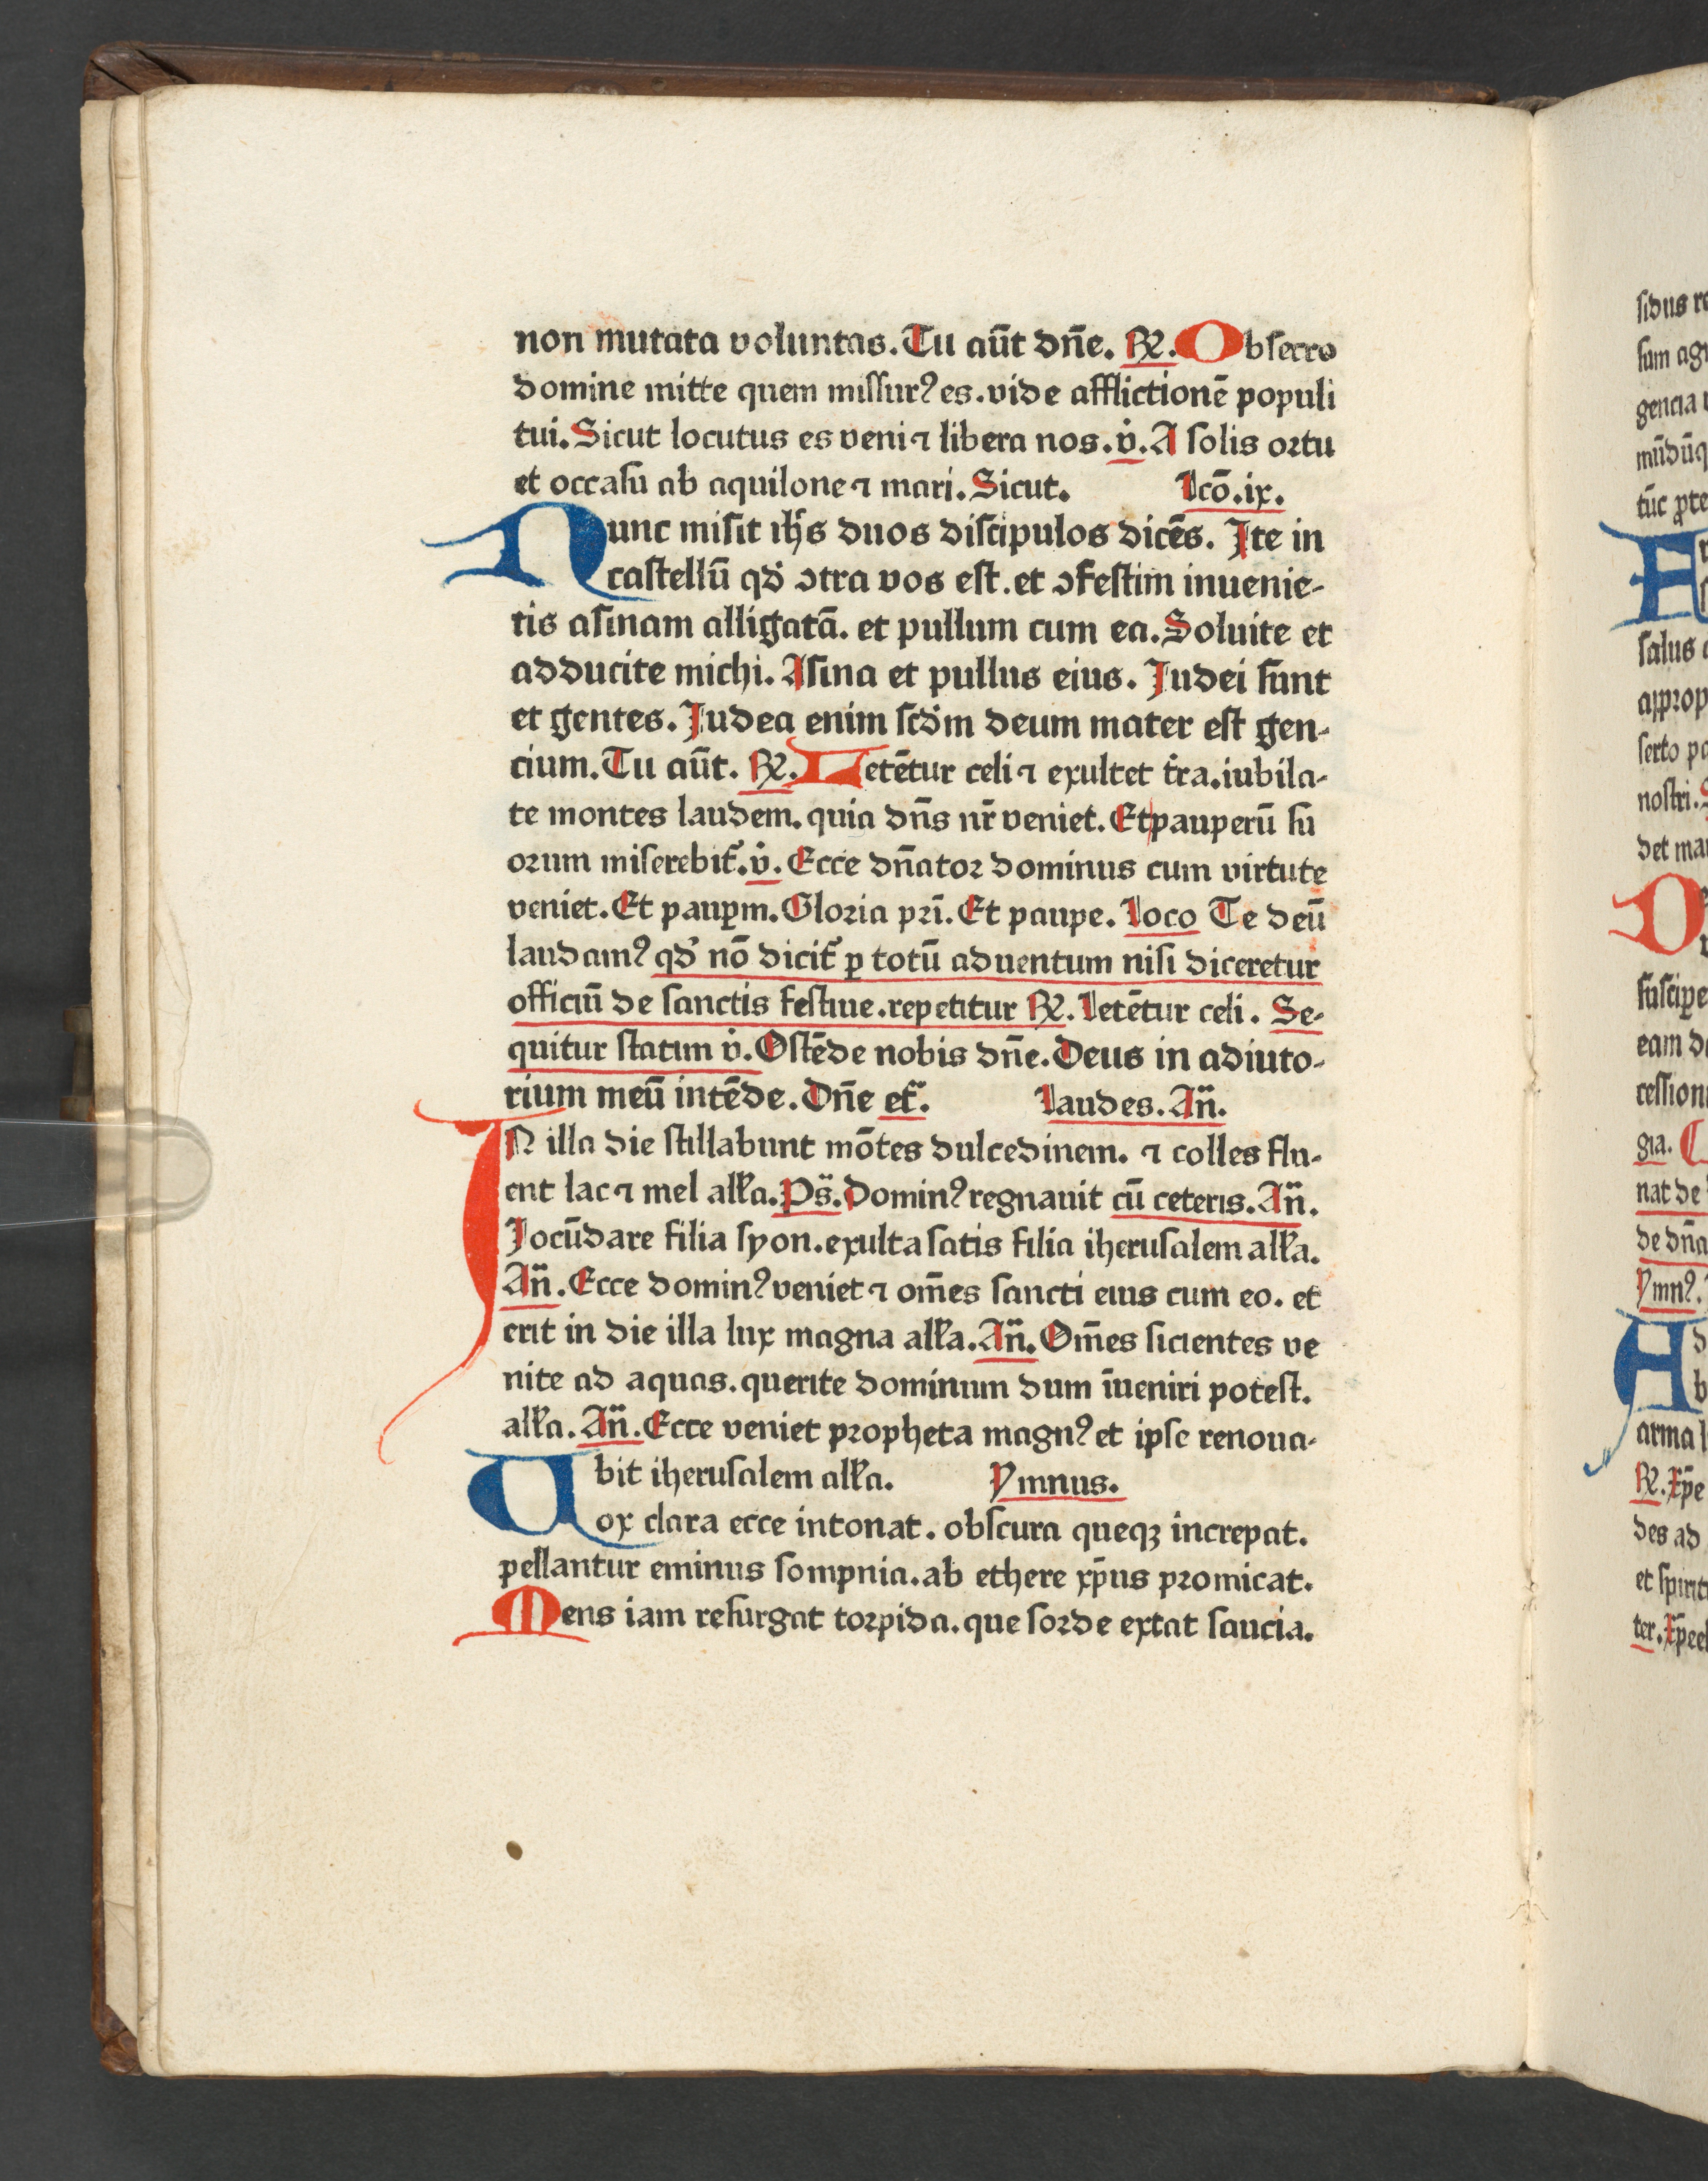 non mutata voluntas. Tu aūt dn̄e. ℟. Obsecro
domine mitte quem missurꝰ es. vide afflictionē populi
tui. Sicut locutus es veni ⁊ libera nos. v̇. A solis ortu
et occasu ab aquilone ⁊ mari. Sicut. Lcō. ix.
Nunc misit ihs̄ duos discipulos dicēs. Ite in
castellū qd̕ ↄtra vos est. et ↄfestim inuenie-
tis asinam alligatā. et pullum cum ea. Soluite et
adducite michi. Asina et pullus eius. Judei sunt
et gentes. Judea enim scd̕m deum mater est gen-
cium. Tu aūt. ℟. Letētur celi ⁊ exultet t̕ra. iubila-
te montes laudem. quia dn̄s nr̄ veniet. Et pauperū su
orum miserebit᷑. v̇. Ecce dn̄ator dominus cum virtute
veniet. Et pauꝑm. Gloria pr̄i. Et paupe. Loco Te deū
laudamꝰ qd̕ nō dicit᷑ ꝑ totū aduentum nisi diceretur
officiū de sanctis festiue. repetitur ℟. Letētur celi. Se-
quitur statim v̇. Ostēde nobis dn̄e. Deus in adiuto-
rium meū intēde. Dn̄e et᷑. Laudes. An̄.
IN illa die stillabunt mōtes dulcedinem. ⁊ colles flu-
ent lac ⁊ mel all̕a. Ps̄. Dominꝰ regnauit cū ceteris. An̄.
Jocūdare filia syon. exulta satis filia iherusalem all̕a.
An̄. Ecce dominꝰ veniet ⁊ om̄es sancti eius cum eo. et
erit in die illa lux magna all̕a. An̄. Om̄es sicientes ve
nite ad aquas. querite dominum dum īueniri potest.
all̕a. An̄. Ecce veniet propheta magnꝰ et ipse renoua-
bit iherusalem all̕a. Ymnus.
Uox clara ecce intonat. obscura queqꝫ increpat.
pellantur eminus sompnia. ab ethere xp̄us promicat.
Mens iam resurgat torpida. que sorde extat saucia.
sidus
sum
gencia
tūc
salus
approp
serto
nostri. S
det
De
suscipe
eam
cession
gia.
nat de
de dn̄a
Ymnꝰ.
arma
℟. Xp̄e
des ad
et spirit
ter. Xp̄e